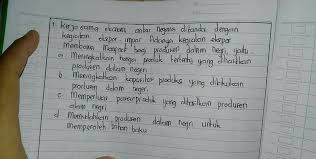 1. Kerja sama ekonomi antar negara ditandai dengan
kegiatan ekspor-impor. Adanya kegiatan ekspor
membawa manfaat bagi produsen dalam negri, yaitu
a. Meningkatkan harga produk tertentu yang dihasilkan
produsen dalam negri
b. Meningkatkan kapasitas produksi yang dilakukan
produsen dalam negri
c. Memperluas pasar produk yang dihasilkan produsen
dalam negri
d. Memudahkan produsen dalam negri untuk
memperoleh bahan baku